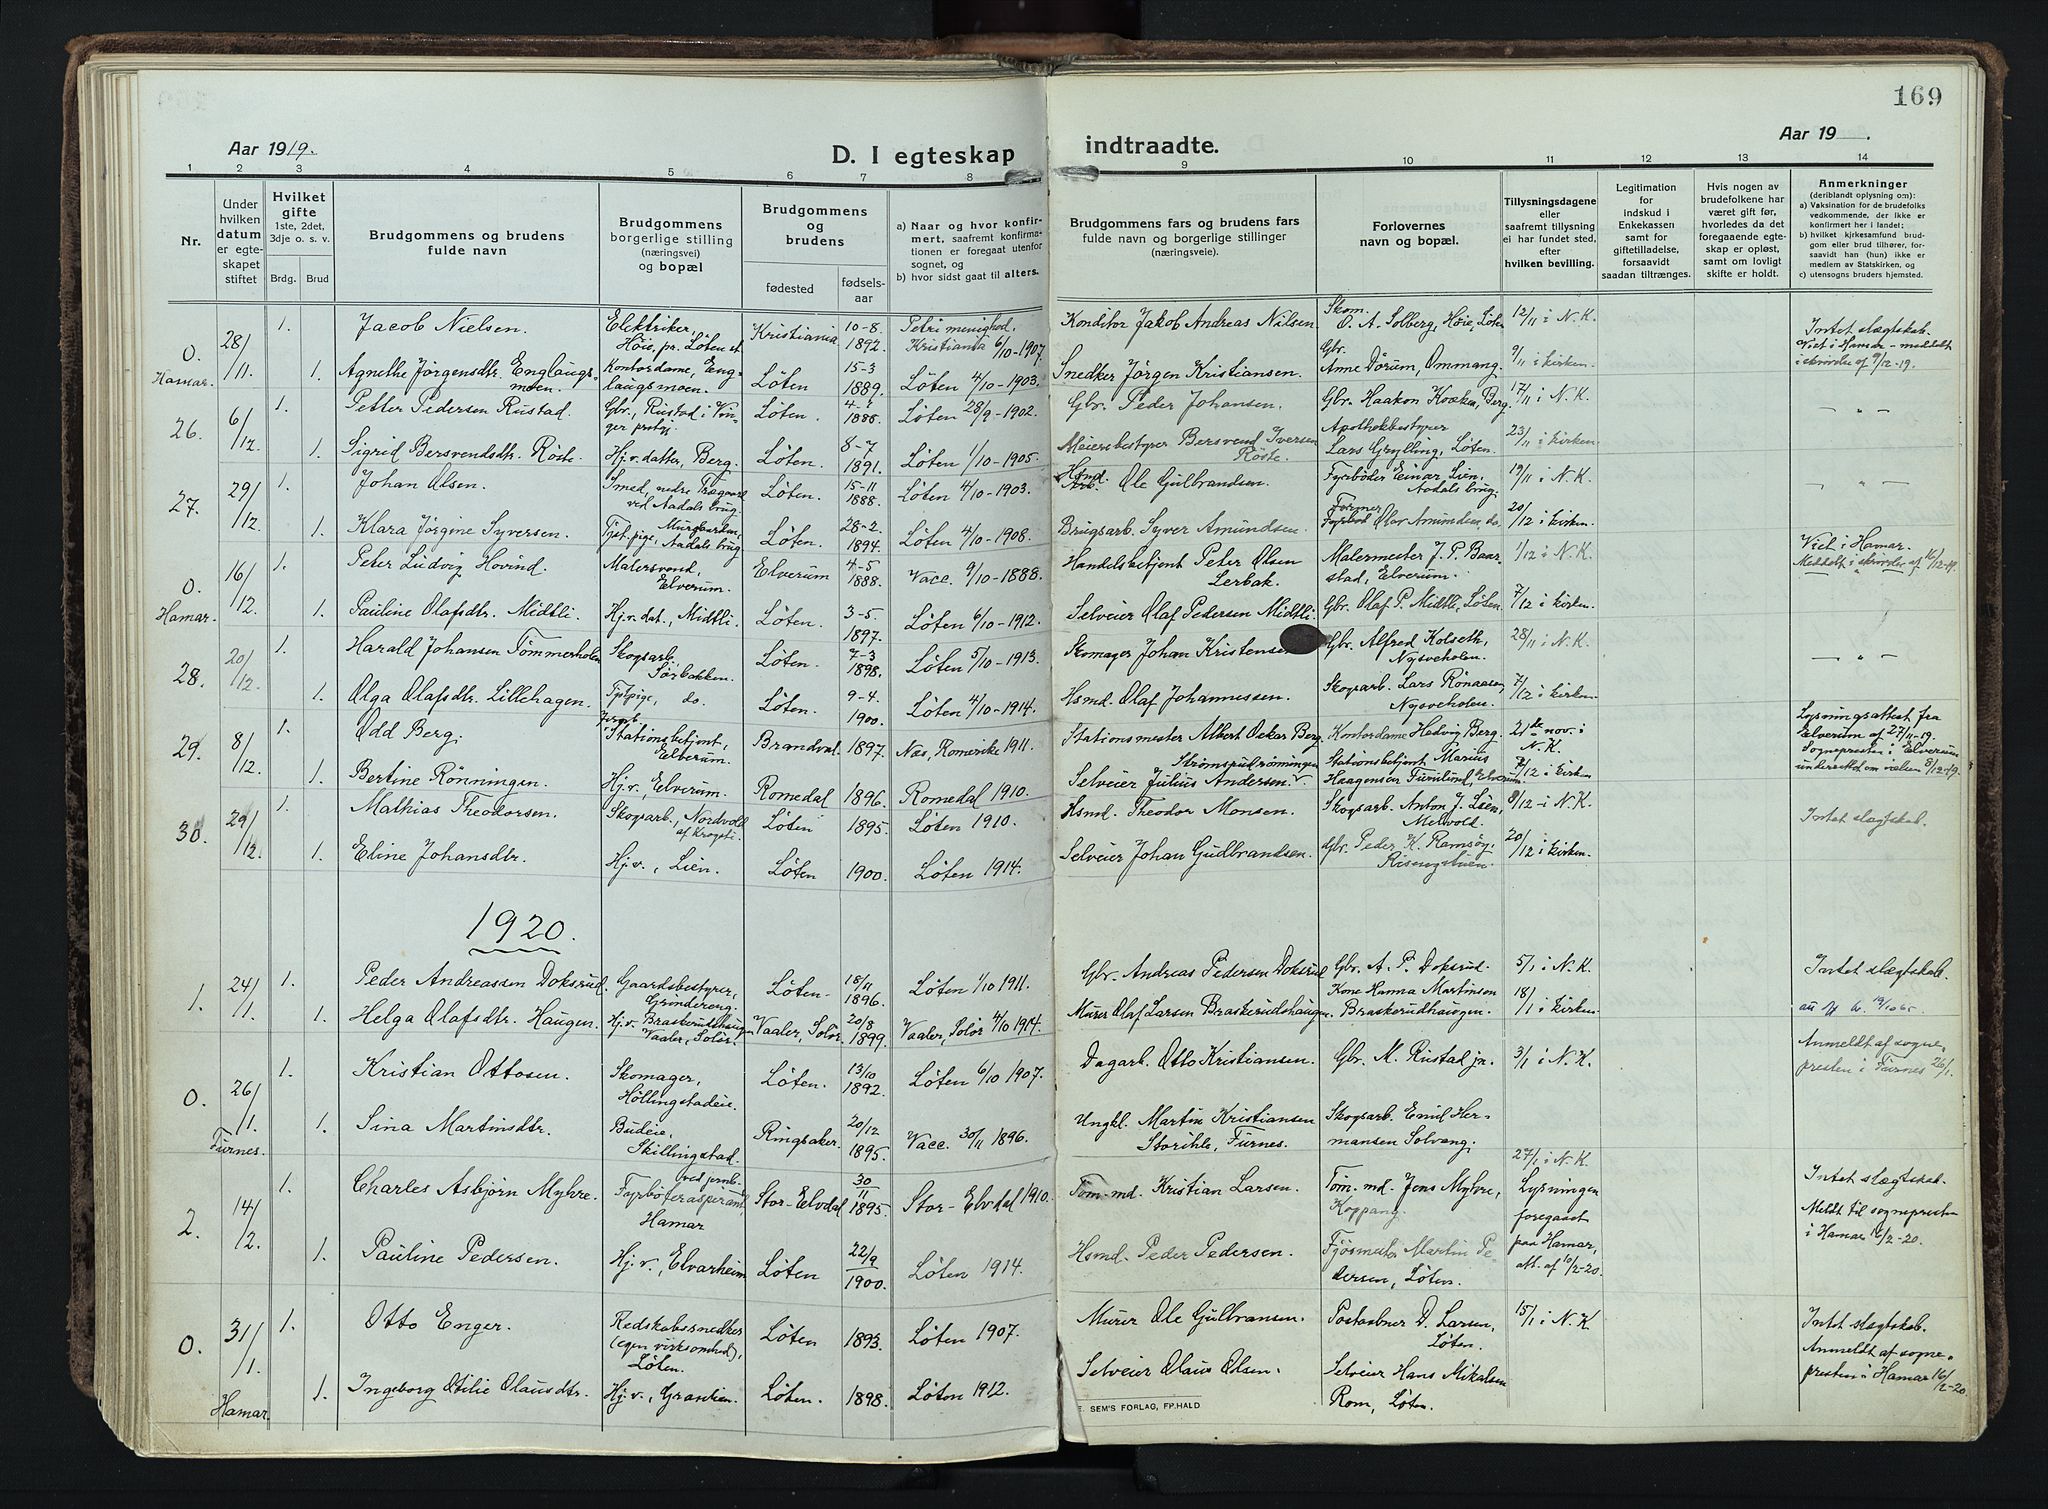 169
Aar 1919.
D. I egteskap indtraadte.
Aar 19 .
1 2 3 4 5 6 7 8 9 10 11 12 13 14
Nr.
Under hvilken datum er egteskapet stiftet
Hvilket gifte 1ste, 2det, 3dje o. s. v.
Brdg. Brud
Brudgommens og brudens fulde navn
Brudgommens borgerlige stilling (næringsvei) og bopæl
Brudgommens og brudens
fødested
fødselsaar
a) Naar og hvor konfirmert, saafremt konfirmationen er foregaat utenfor sognet, og
b) hvor sidst gaat til alters.
Brudgommens fars og brudens fars fulde navn og borgerlige stillinger (næringsveie).
Forlovernes navn og bopæl.
Tillysningsdagene eller saafremt tillysning ei har fundet sted, efter hvilken bevilling.
Legitimation for indskud i Enkekassen samt for giftetilladelse, forsaavidt saadan tiltrænges.
Hvis nogen av brudefolkene har været gift før, hvorledes da det foregaaende egteskap er opløst, samt om lovligt skifte er holdt.
Anmerkninger
(deriblandt oplysning om:
a) Vaksination for de brudefolks vedkommende, der ikke er konfirmert her i landet;
b) hvilket kirkesamfund brudgom eller brud tilhører, forsaavidt han (hun) ikke er medlem av Statskirken, og
c) utensogns bruders hjemsted.
0. Hamar. 28/11. 1. Jacob Nielsen. Elektriker, Høie, pr. Løten st. Kristiania 10-8. 1892. Petri menighed, Kristiania 6/10-1907. Konditor Jakob Andreas Nilsen. Skom. O. A. Solberg, Høie, Løten 12/11 i N. K. Intet slægtskab. Viet i Hamar - meddelt i skrivelse af 9/12-19.
1. Agnethe Jörgensdtr. Englaugsmoen. Kontordame, Englaugsmoen. Løten 15-3 1889. Løten 4/10-1903. Snedker Jörgen Kristiansen. Gbr. Arne Dörum, Ommang. 9/11 i kirken.
26. 6/12. 1. Petter Pedersen Rustad. Gbr., Rustad i Vinger prstgj. Løten. 1888. Løten 28/9-1902. Gbr. Peder Johansen. Gbr. Haakon Kvæken, Berg. 17/11 i N. K. — " —
1. Sigrid Bersvendsdtr. Röste. Hj.v. datter, Berg. Løten. 8-7 1891. Løten 1/10-1905. Meieribestyrer Bersvend Iversen Röste. Apothekbestyrer Lars Grylling, Løten. 23/11 i kirken.
27. 29/12. 1. Johan Olsen. Smed, nedre ved Aadals brug. Løten. 15-11 1888. Løten 4/10-1903. Hsmd. Ole Gulbrandsen. Fyrbøder Einar Lien, Aadals brug. 19/11 i N. K. — " —
1. Klara Jørgine Syversen. Tjst. pige, Aadals brug Løten. 28-2. 1894. Løten 4/10-1908. Brugsarb. Syver Amundsen. Former Olav Amundsen, do. 20/12 i kirken.
0. Hamar. 16/12. 1. Peter Ludvig Hovind. Malersvend, Elverum. Elverum 4-5 1888. Vacc. 9/10-1888. Handelsbetjent Peter Olsen Lerbak. Malermester J. P. Baarstad, Elverum. 1/12 i N. K. Viet i Hamar. Meddelt i skrivelse af 16/12-19.
1. Pauline Olafsdtr. Midtli. Hj.v. dat., Midtli. Løten 3-5. 1897. Løten 6/10-1912. Selveier Olaf Pedersen Midtli. Gbr. Olaf P. Midtli, Løten. 7/12 i kirken.
28. 20/12. 1. Harald Johansen Tömmerholen Skogsarb. Sørbakken. Løten. 7-3 1898. Løten 5/10-1913. Skomager Johan Kristensen Gbr. Alfred Kolseth, Nysveholen. 28/11 i N. K. — " —
1. Olga Olafsdtr. Lillehagen. Tjstpige, do. Løten. 9-4. 1900. Løten 4/10-1914. Hsmd. Olaf Johannessen. Skogsarb. Lars Rönaasen, Nysveholen. 7/12 i kirken.
29. 8/12. 1. Odd Berg. Stationsbetjent, Elverum. Brandval 1897. Nes, Romerike 1911. Stationsmester Albert Oskar Berg. Kontordame Hedvig Berg. 21de nov. i N. K. Lysningsattest fra Elverum af 27/11-19. Sognepresten i Elverum underrettet om vielsen 8/12-19.
1. Bertine Rönningen. Hj.v., Elverum. Romedal 1896. Romedal 1910. Selveier Julius Andersen Stationsbetjent Marius Haagensen Furulund, Elverum /12 i kirken
30. 29/12. 1. Mathias Theodorsen. Skogsarb., Nordvold Løten 1895. Løten 1910. Hsmd. Theodor Monsen. Skogsarb. Anton J. Lien, Melvold. 8/12 i N. K. Intet slægtskab.
1. Eline Johansdtr. Hj.v., Lien. Løten 1900. Løten 1914. Selveier Johan Gudbrandsen. Gbr. Peder H. Ramsøy, 20/12 i kirken.
1920.
1. 24/1. 1. Peder Andreassen Doksrud. Gaardsbestyrer, Grindereng. Løten. 18/11 1896. Løten 1/10 1911. Gbr. Andreas Pedersen Doksrud Gbr. A. P. Doksrud. 5/1 i N. K. Intet slægtskab.
1. Helga Olafsdtr. Haugen. Hj.v. Braskerudshaugen Vaaler, Solör. Vaaler, Solör. 20/8 1899. Vaaler, Solör 4/10 1914. Murer Olaf Larsen Braskerudshaugen. Kone Hanna Martinsen Braskerudhaugen. 18/1 i kirken.
0. Furnes. 26/1. 1. Kristian Ottosen. Skomager, Höllingstadeie. Løten. 13/10 1892. Løten 6/10 1907. Dagarb. Otto Kristiansen. Gbr. M. Rustad jr. 3/1 i N. K. Anmeldt af sognepresten i Furnes 26/1.
1. Sina Martinsdtr. Budeie, Skillingstad. Ringsaker. 20/12 1895. Vacc. 30/11 1896. Ungkl. Martin Kristiansen Storihle, Furnes. Skogsarb. Emil Hermansen Solvang.
2. 14/2. 1. Charles Asbjörn Myhre. Fyrböteraspirant ved jernb. Hamar Stor-Elvdal 30/11 1895. Stor-Elvdal 1910. Töm. md. Kristian Larsen. Töm. md. Jens Myhre, Koppang. 27/1 i N. K. Lysningen foregaat paa Hamar, att. af 10/2-20. Intet slægtskab. Meldt til sognepresten i Hamar 16/2-20.
1. Pauline Pedersen. Hj.v., Elvarheim Løten 22/9 1900. Løten 1914. Hsmd. Peder Pedersen. Fjösmester Martin Pedersen, Løten.
0. Hamar 31/1. 1. Otto Enger. Redskabssnedker (egen virksomhed), Løten. Løten 1893. Løten 1907. Murer Ole Gulbransen. Postaabner D. Larsen, Løten. 15/1 i N. K. Intet slægtskab. Anmeldt af sognepresten i Hamar 16/2-20.
1. Ingeborg Otilie Olausdtr. Hj.v., Granlien. Løten. 1898. Løten 1912. Selveier Olaus Olsen. Selveier Hans Mikalsen Rom, Løten.
E. SEM'S FORLAG, FR.HALD